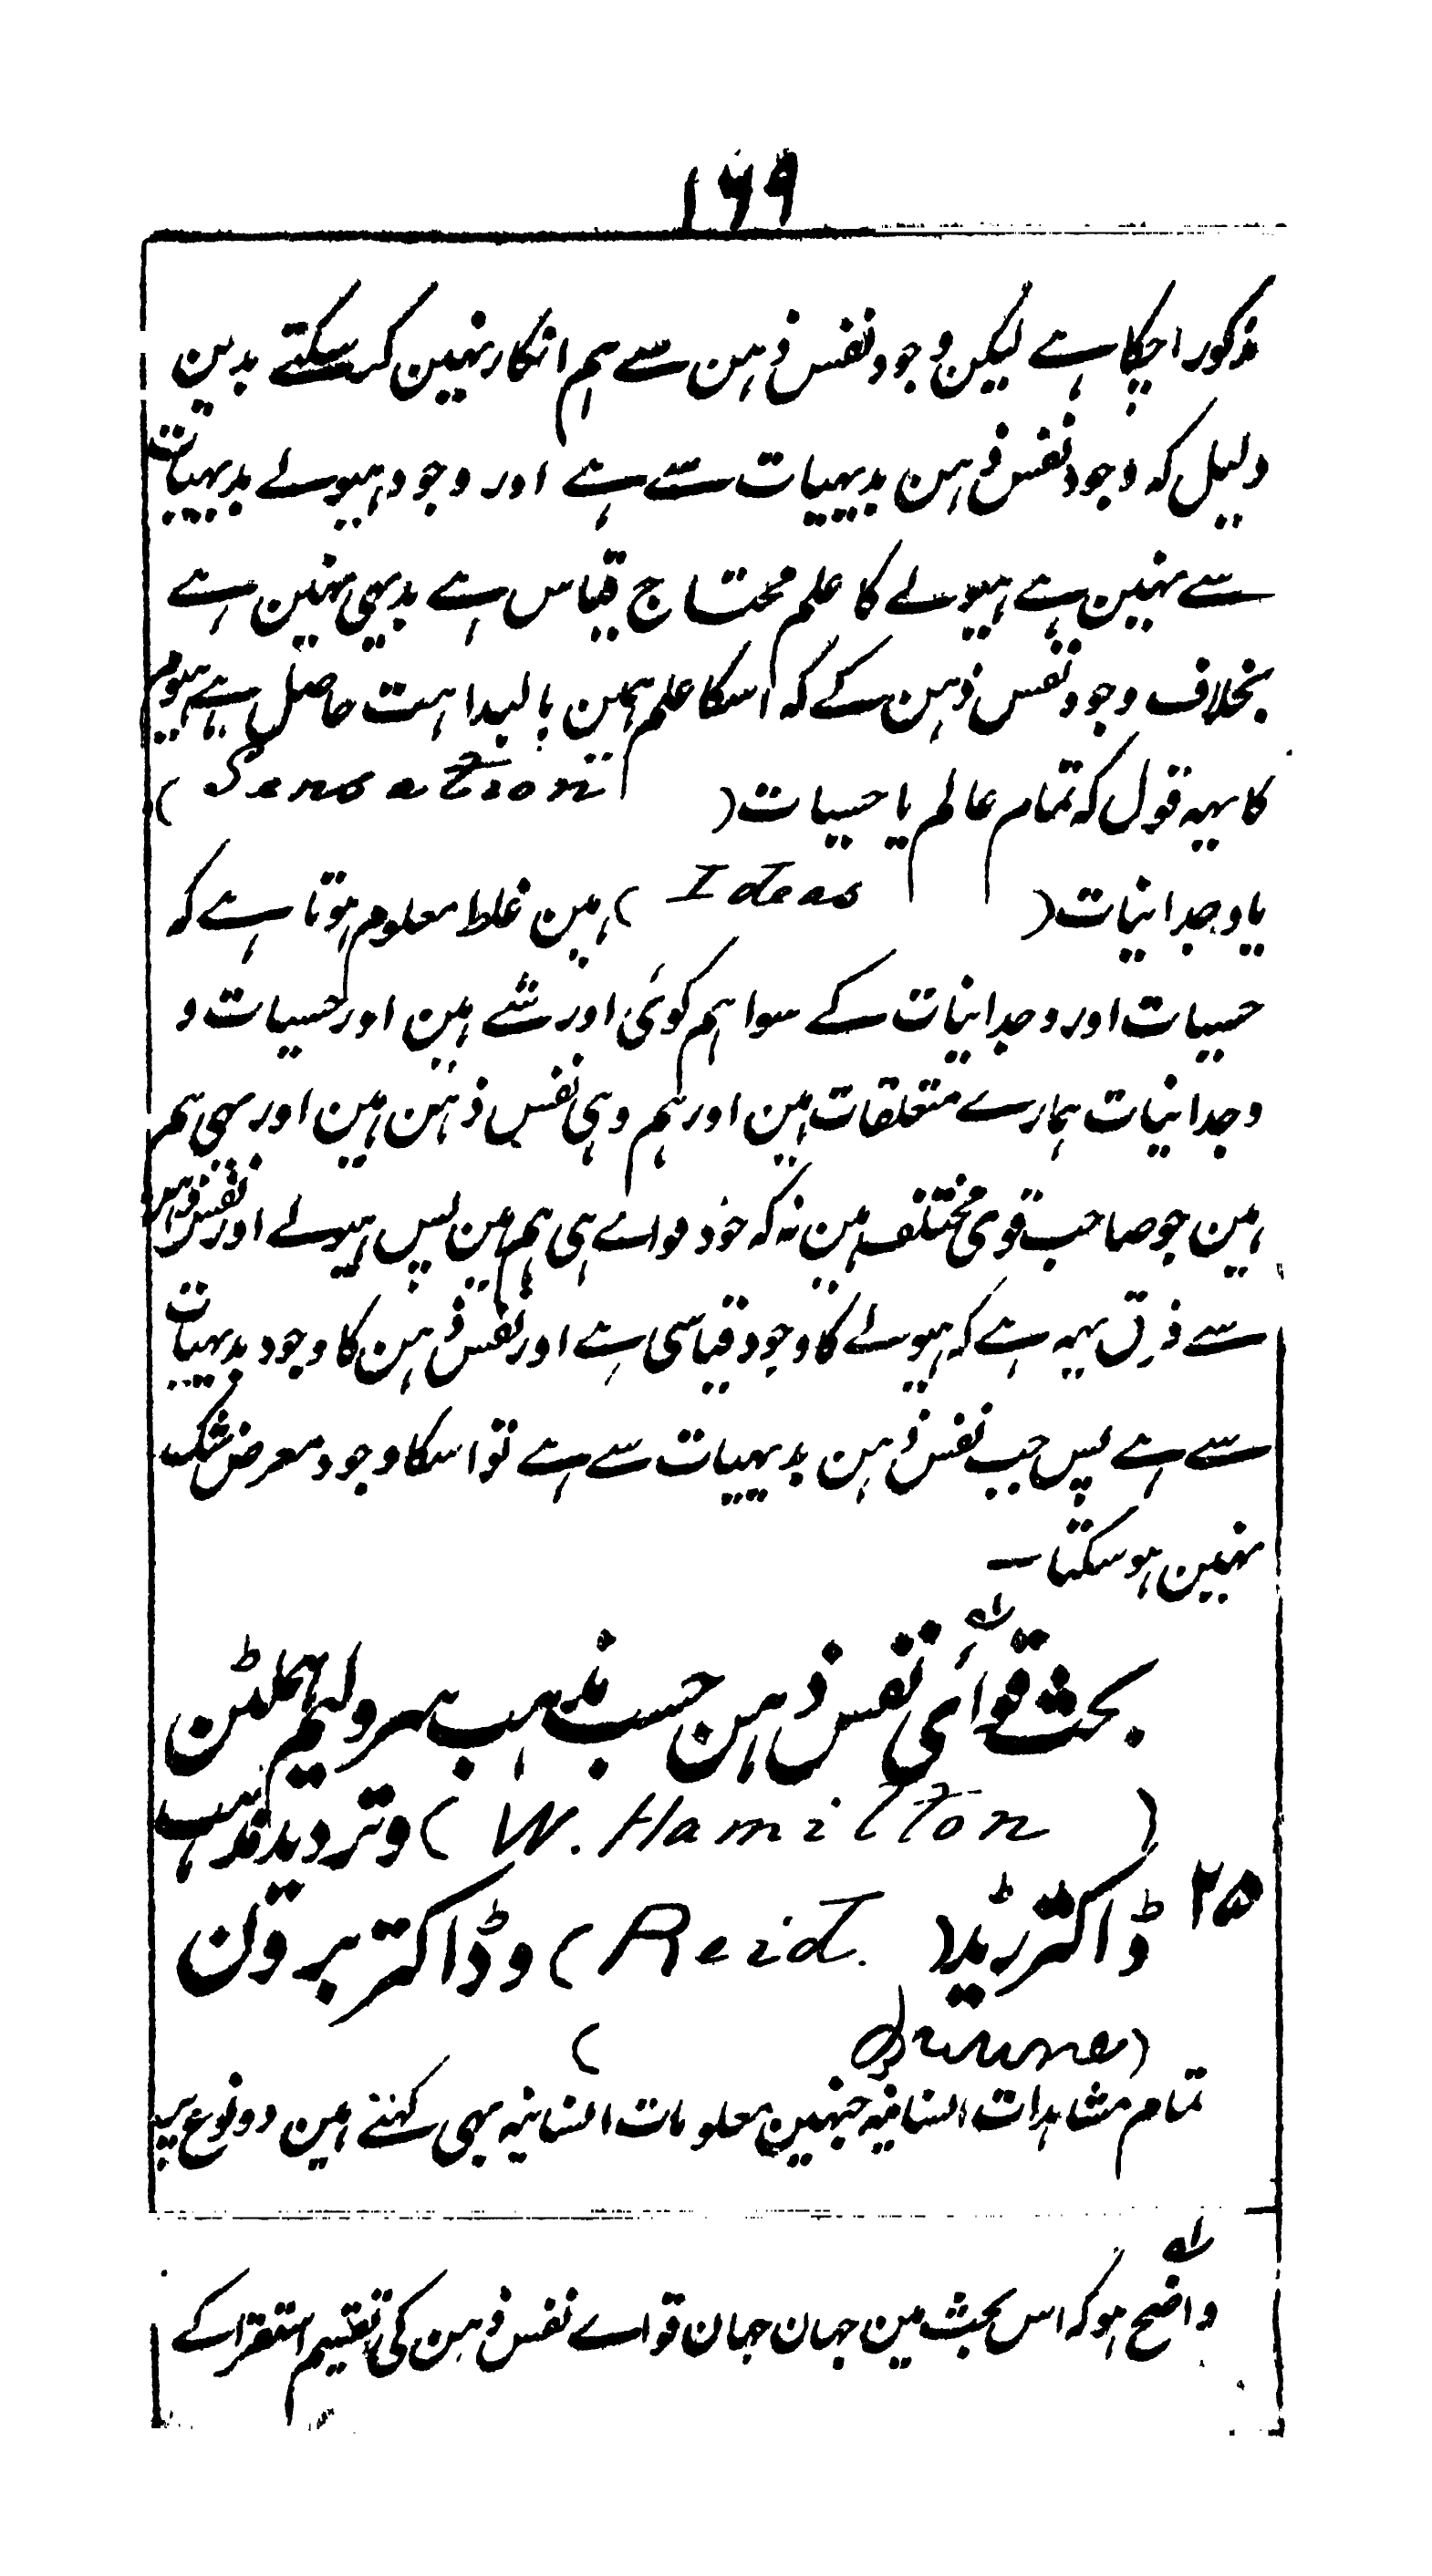 ۱۶۹
مذکور اچکا ہے لیکن وجود نفس ذہن سے ہم انکار نہین کر سکتے بدین
دلیل که وجود نفس ذہن بدیہیات سے ہے اور وجود ہیولے بدیہیات
سے نہین ہے ہیولے کا علم محتاج قیاس ہے بدیہی نہین ہے
بخلاف وجود نفس ذہن کے که اسکا علم ہمین بالبداہت حاصل ہے ہیوم
کا یہہ قول که تمام عالم یا حسیات (Sensation)
یا وجدانیات (Ideas) ہین غلط معلوم ہوتا ہے که
حسیات اور وجدانیات کے سوا ہم کوئی اور شے ہین اور حسیات و
وجدانیات ہمارے متعلقات ہین اور ہم وہی نفس ذہن ہین اور یہی ہم
ہین جو صاحب قوی مختلف ہین نه که خود قواے ہی ہم ہین پس ہیولے اور نفس ذہن
سے فرق یہہ ہے که ہیولے کا وجود قیاسی ہے اور نفس ذہن کا وجود بدیہیات
سے ہے پس جب نفس ذہن بدیہیات سے ہے تو اسکا وجود معرض شک
نہین ہو سکتا ـ
بحث قوائی نفس ذہن حسب مذہب سر ولیم ہملٹن
(W. Hamilton) و تردید مذہب
۲۵ ڈاکتر ریڈ (Reid.) و ڈاکتر برون
( )
تمام مشاہدات انسانیه جنہین معلومات انسانیه بہی کہتے ہین دو نوع پر
واضح ہو که اس بحث مین جہان جہان قواے نفس ذہن کی تقسیم استقرا کے